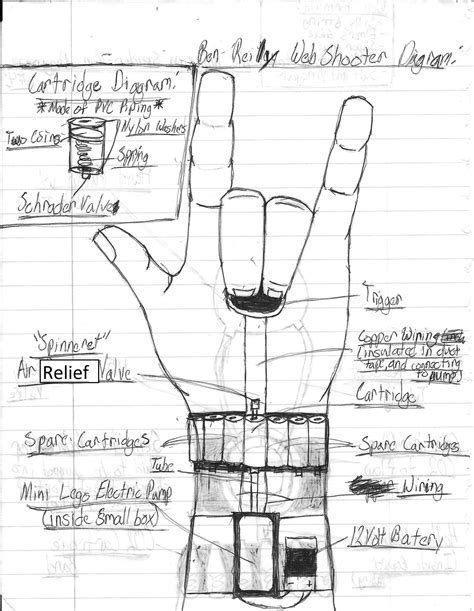 Ben-Reilly Web Shooter Diagram:
Cartridge Diagram:
*Made of PVC Piping*
Nylon Washers
Spring
Schrader Valve
Trigger
Copper Wiring
(insulated in duct
tape, and connecting
to pump)
Cartridge
"Spinneret"
Air Relief Valve
Spare Cartridges
Spare Cartridges
Tube
Wiring
Mini Lego Electric Pump
(inside small box)
12 Volt Batery